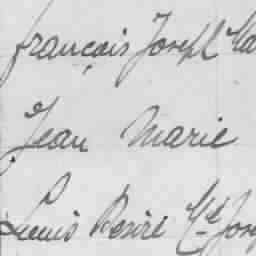 françois Joseph
Jean Marie
Louis Désiré